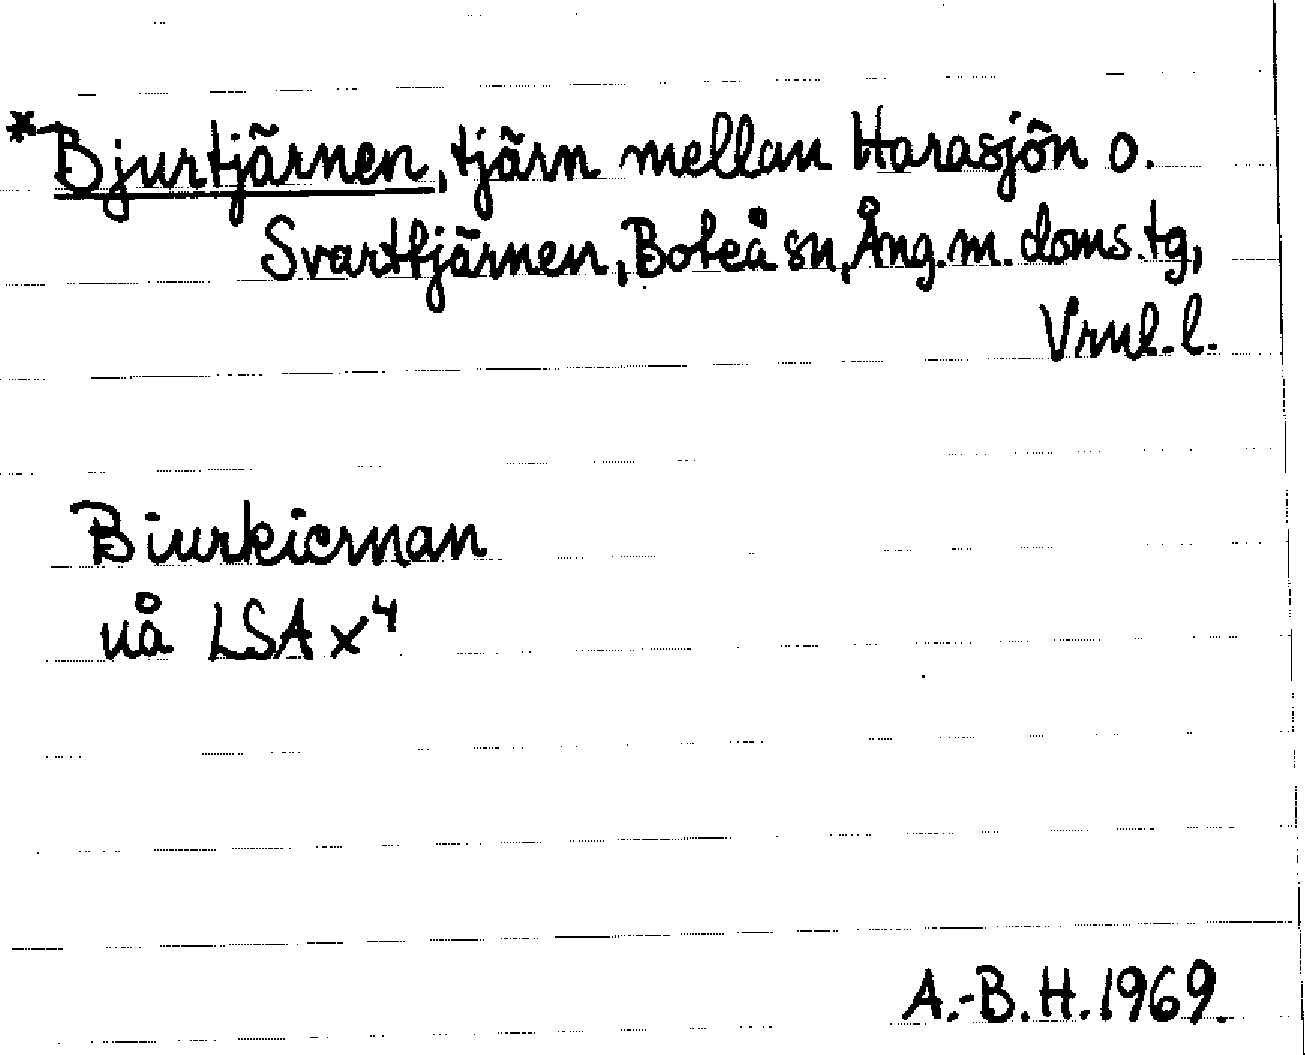 *Bjurtjärnen, tjärn mellan Harasjön o.
Svarttjärnen, Boteå sn, Ång.m. doms.tg,
Vrnl. l.
Biurkiernan
nå LSA x⁴
A.-B. H. 1969.